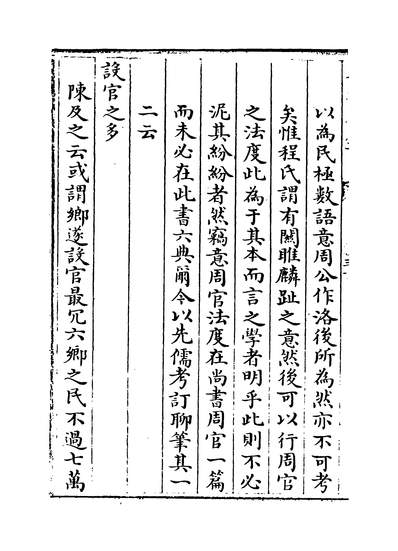 以為民極數語意周公作洛後所為然亦不可考
矣惟程氏謂有關雎麟趾之意然後可以行周官
之法度此為于其本而言之學者明乎此則不必
泥其紛紛者然竊意周官法度在尚書周官一篇
而未必在此書六典爾今以先儒考訂聊筆其一
二云
設官之多
陳及之云或謂鄉遂設官最冗六鄉之民不過七萬